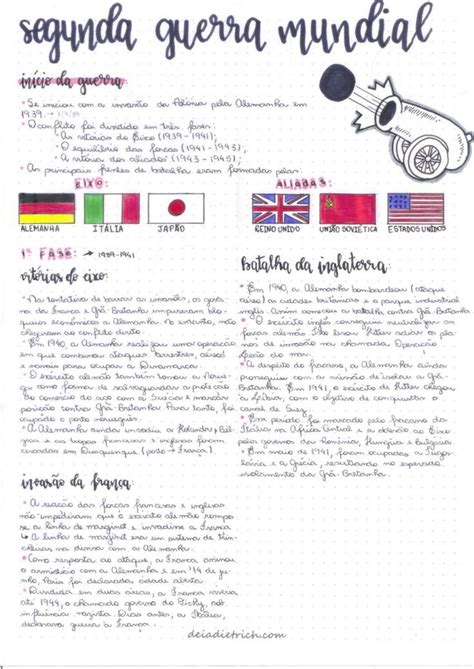 segunda guerra mundial
início da guerra
• Se iniciou com a invasão da Polônia pela Alemanha em
1939. → 1/9/39
• O conflito foi dividido em três fases:
• As vitórias do Eixo (1939-1941);
• O equilíbrio das forças (1941-1943);
• A vitória dos aliados (1943-1945);
• As principais frentes de batalha eram formadas pelos:
EIXO:
ALIADOS:
ALEMANHA ITÁLIA JAPÃO
REINO UNIDO UNIÃO SOVIÉTICA ESTADOS UNIDOS
1ª FASE: → 1939-1941
vitórias do eixo:
• Na tentativa de barrar as invasões, os gover-
nos da França e Grã-Bretanha impuseram blo-
queios econômicos a Alemanha. No entanto, não chegaram
ao conflito direto.
• Em 1940, a Alemanha realizou uma operação
em que combinou ataques terrestres, aéreos
e navais para ocupar a Dinamarca.
• O exército alemão também tomou a Norue-
ga como forma de salvaguardar a
comércio do aço com a Suécia e marcar
posição contra Grã-Bretanha. Para tanto, foi
ocupado o porto norueguês.
• A Alemanha ainda invadiu a Holanda, Bél-
gica e as tropas francesas e inglesas foram
cercadas em Dunquerque (porto → França).
invasão da frança:
• A reação das forças francesas e inglesas
não impediram que o exército alemão rompes-
se a linha de maginot e invadisse a França
↳ A linha de maginot era um sistema de trin-
cheiras na divisa com a Alemanha.
• Como resposta ao ataque, a França assinou
o armistício com a Alemanha e em 14 de ju-
nho, Paris foi declarada cidade aberta
• Dividida em duas áreas, a França
até 1944, o chamado governo de Vichy, sob
influência nazista. Dias antes, a Itália,
declarava guerra à França.
batalha da inglaterra:
• Em 1940, a Alemanha bombardeou (ataque
aéreo) as cidades britânicas e o parque industrial
inglês. Assim começou a batalha contra Grã-Bretanha
• O exército inglês conseguiu neutralizar as
forças alemãs. Isto levou Hitler adiar os pla-
nos de invasão na chamada Operação
Leão do mar.
• A despeito do fracasso, a Alemanha ainda
prosseguiu com a missão de isolar a Grã-
Bretanha. Em 1941, o exército de Hitler chegou
à Líbia, com o objetivo de conquistar o
canal de Suez.
• Esse período foi marcado pelo fracasso da
Itália na África Central e a adesão ao Eixo
pelos governos da Romênia, Hungria e Bulgária
• Em maio de 1941, foram ocupadas a Iugos-
lávia e a Grécia, resultando no esperado
isolamento da Grã-Bretanha.
deiadietrich.com